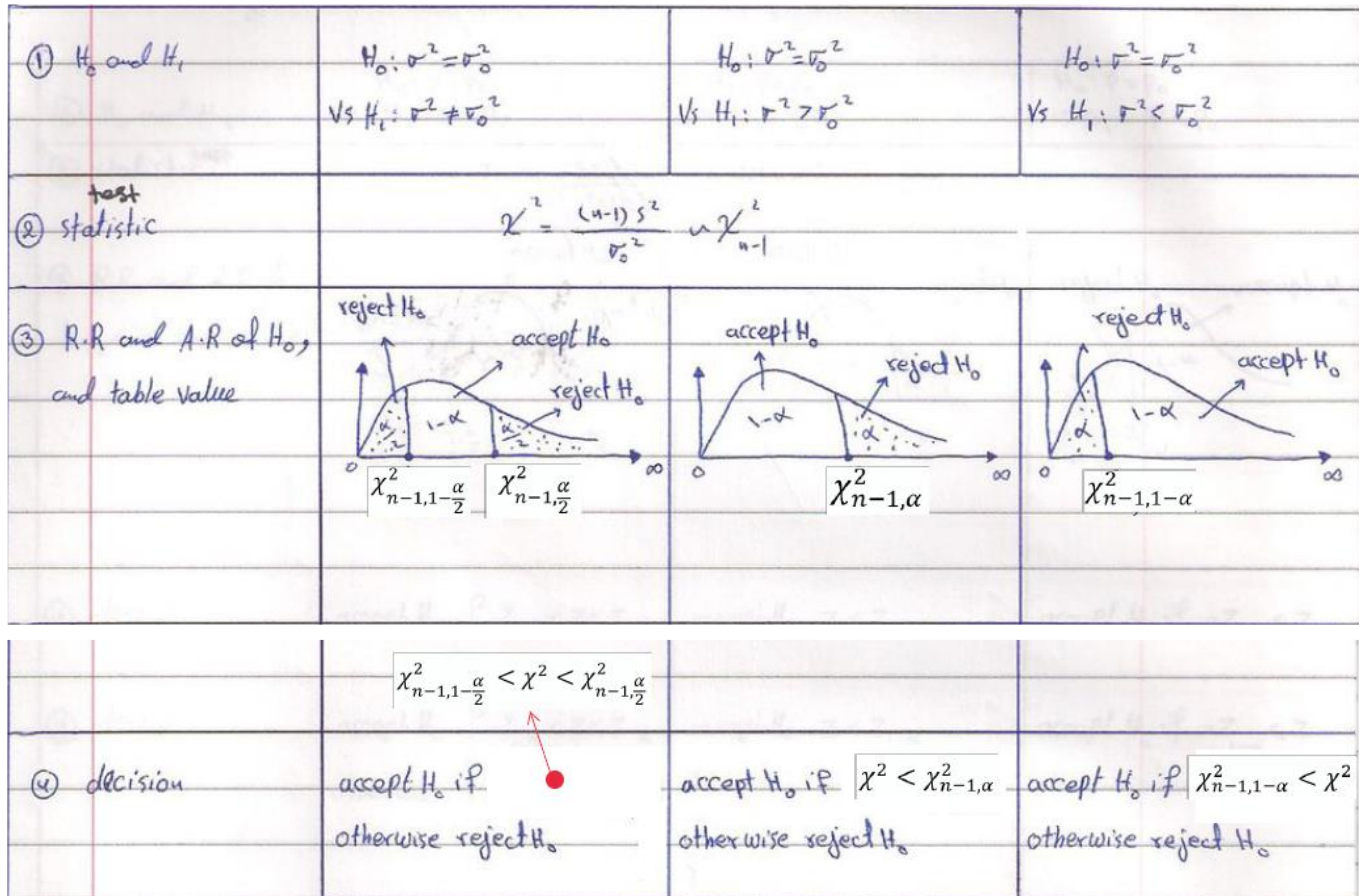 ① H₀ and H₁
H₀: σ² = σ₀²
Vs H₁: σ² ≠ σ₀²
H₀: σ² = σ₀²
Vs H₁: σ² > σ₀²
H₀: σ² = σ₀²
Vs H₁: σ² < σ₀²
test
② statistic
χ² = (n-1) s² / σ₀² ~ χ²ₙ₋₁
③ R.R and A.R of H₀,
and table value
reject H₀
accept H₀
reject H₀
α/2 1-α α/2
0 ∞
χ²_{n-1,1-α/2} χ²_{n-1,α/2}
accept H₀
reject H₀
1-α α
0 ∞
χ²_{n-1,α}
reject H₀
accept H₀
α 1-α
0 ∞
χ²_{n-1,1-α}
χ²_{n-1,1-α/2} < χ² < χ²_{n-1,α/2}
④ decision
accept H₀ if
otherwise reject H₀
accept H₀ if χ² < χ²_{n-1,α}
otherwise reject H₀
accept H₀ if χ²_{n-1,1-α} < χ²
otherwise reject H₀